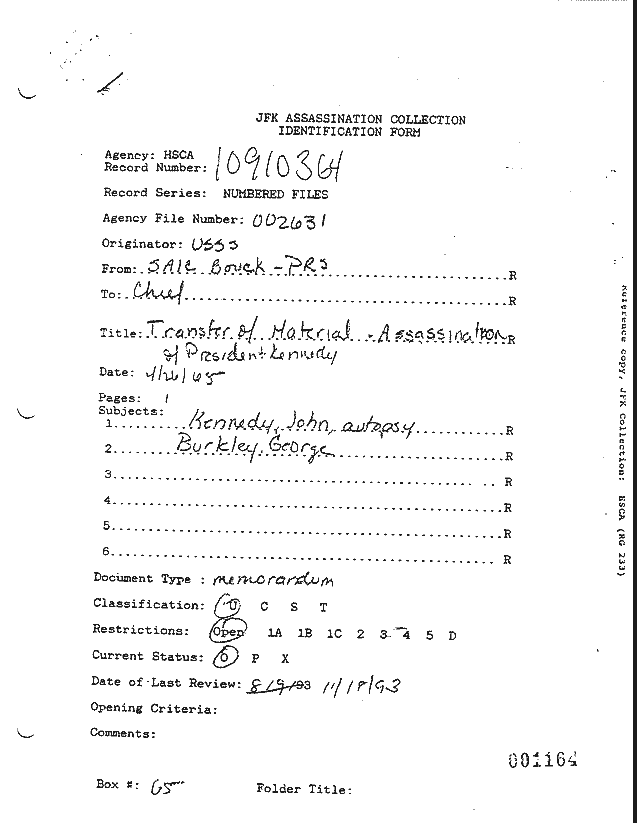 JFK ASSASSINATION COLLECTION
IDENTIFICATION FORM
Agency: HSCA
Record Number: 10910364
Record Series: NUMBERED FILES
Agency File Number: 002631
Originator: USSS
From: SAIC Bouck - PRS R
To: Chief R
Title: Transfer of Material - Assassination R
of President Kennedy
Date: 4/26/65
Pages: 1
Subjects:
1. Kennedy, John, autopsy R
2. Burkley, George R
3. R
4. R
5. R
6. R
Document Type : memorandum
Classification: U C S T
Restrictions: Open 1A 1B 1C 2 3 4 5 D
Current Status: O P X
Date of Last Review: 8/9/93 11/18/93
Opening Criteria:
Comments:
001164
Box #: 65
Folder Title:
Reference copy, JFK Collection: HSCA (RG 233)